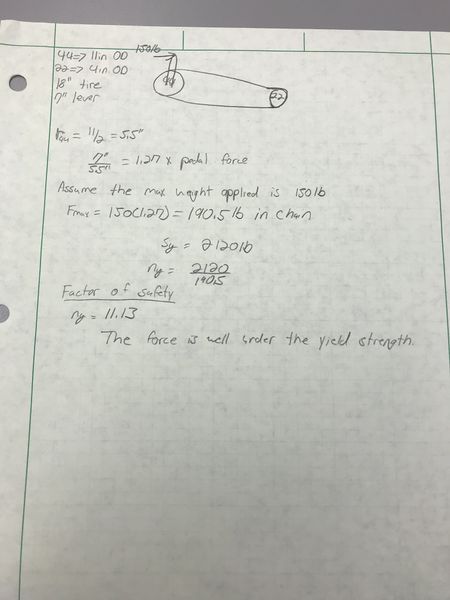 44 => 11in OD
150lb
22 => 4in OD
18" tire
7" lever
44
22
r44 = 11/2 = 5.5"
7"/5.5" = 1.27 x pedal force
Assume the max weight applied is 150lb
Fmax = 150(1.27) = 190.5lb in chain
Sy = 2120lb
ny = 2120/190.5
Factor of safety
ny = 11.13
The force is well under the yield strength.